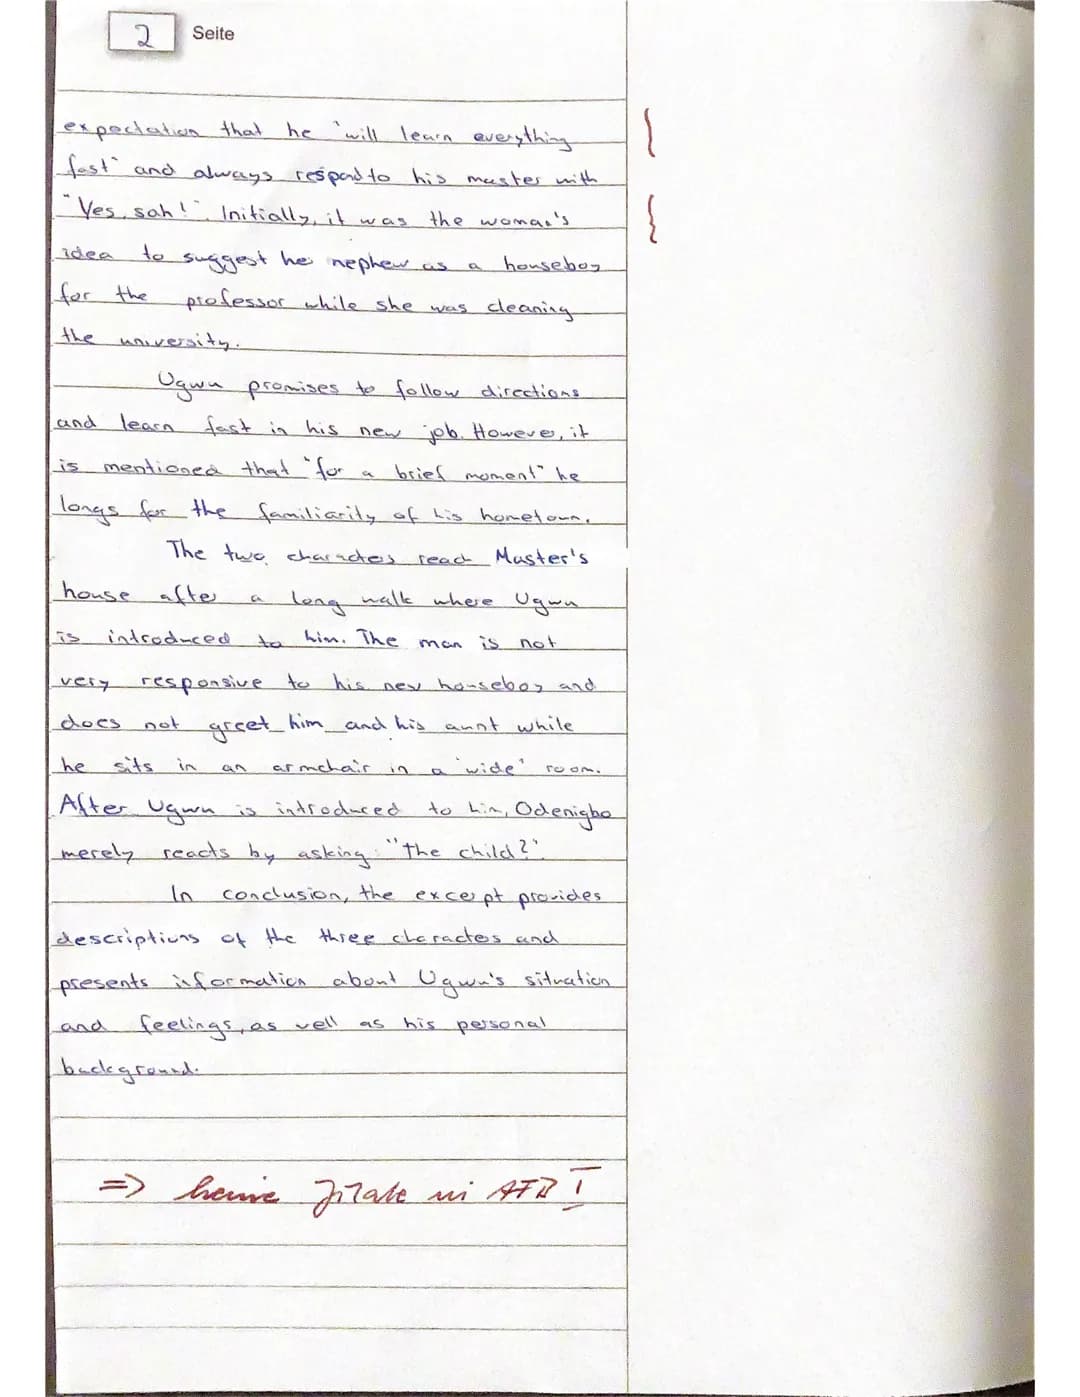 2 Seite
expectation that he "will learn everything
fast" and always respond to his master with
"Yes, sah!". Initially, it was the woman's
idea to suggest he nephew as a houseboy
for the professor while she was cleaning
the university.
Ugwu promises to follow directions
and learn fast in his new job. However, it
is mentioned that "for a brief moment" he
longs for the familiarity of his hometown.
The two characters reach Master's
house after a long walk where Ugwu
is introduced to him. The man is not
very responsive to his new houseboy and
does not greet him and his aunt while
he sits in an armchair in a "wide" room.
After Ugwu is introduced to him, Odenigbo
merely reacts by asking: "the child?".
In conclusion, the excerpt provides
descriptions of the three characters and
presents information about Ugwu's situation
and feelings, as well as his personal
background.
=> keine Zitate in AFB I